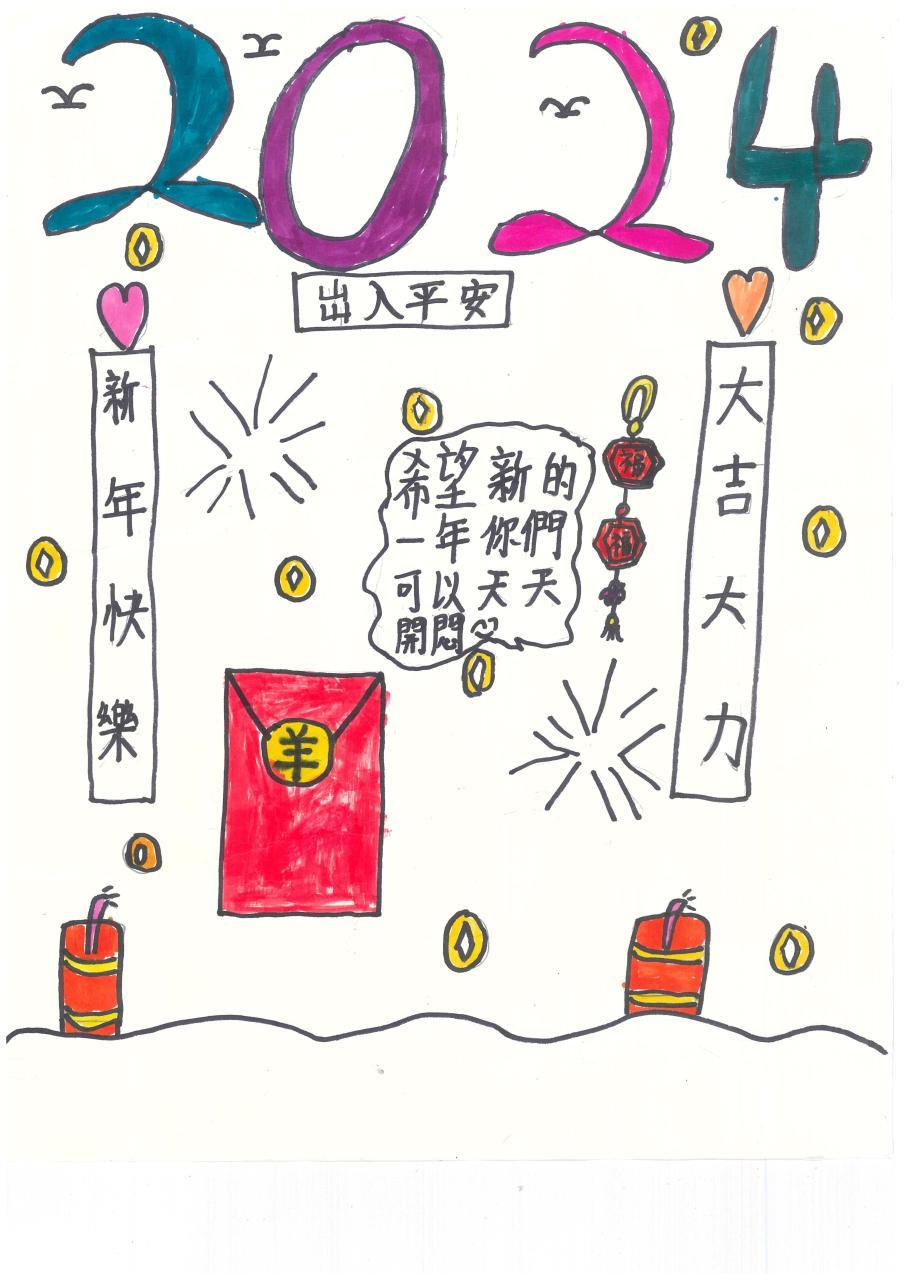 2024
出入平安
新年快樂
大吉大力
希望新的
一年你們
可以天天
開悶
福
福
羊